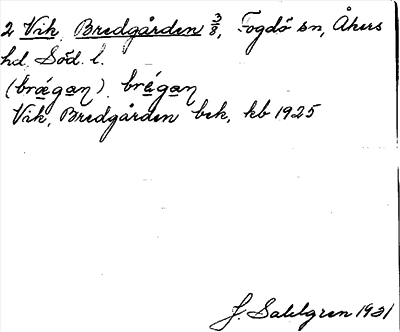 2 Vik, Bredgården 3/8, Fogdö sn, Åkers
hd. Söd. l.
(brǽgan), brégan
Vik, Bredgården bek, kb 1925
J. Sahlgren 1931